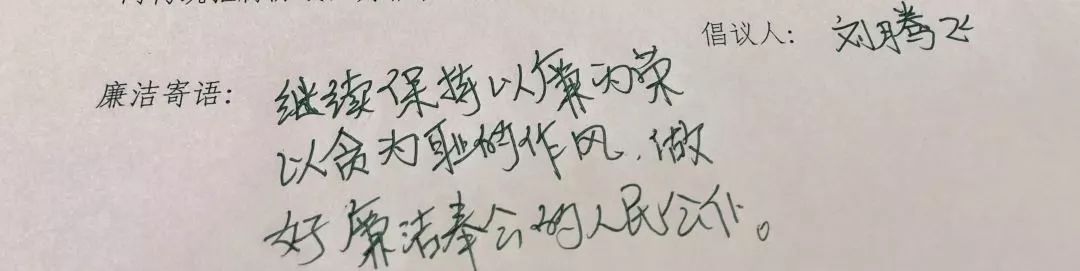 倡议人：刘腾飞
廉洁寄语：继续保持以廉为荣
以贪为耻的作风，做
好廉洁奉公的人民公仆。